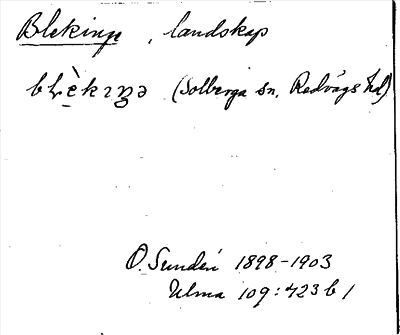 Blekinge, landskap
blèkıŋə (Solberga sn, Redvägs hd)
O. Sundén 1898-1903
Ulma 109:423 b 1